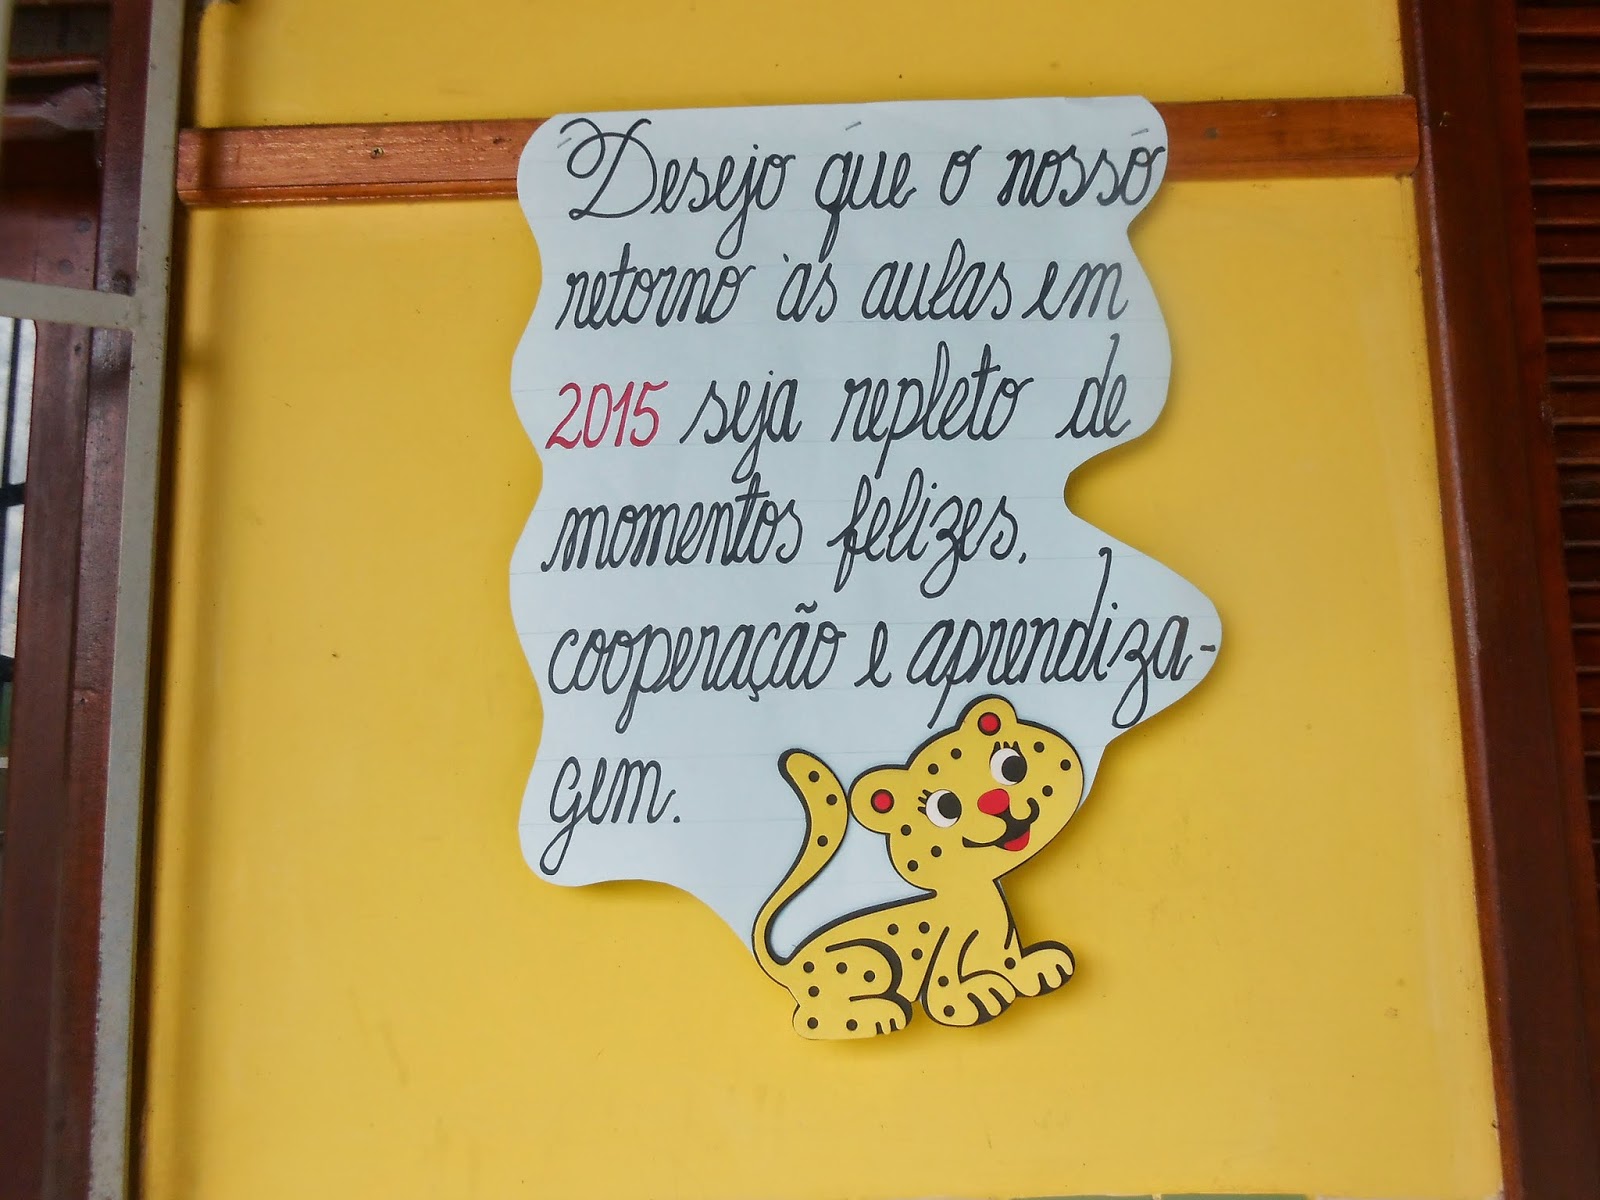 Desejo que o nosso
retorno às aulas em
2015 seja repleto de
momentos felizes,
cooperação e aprendiza-
gem.